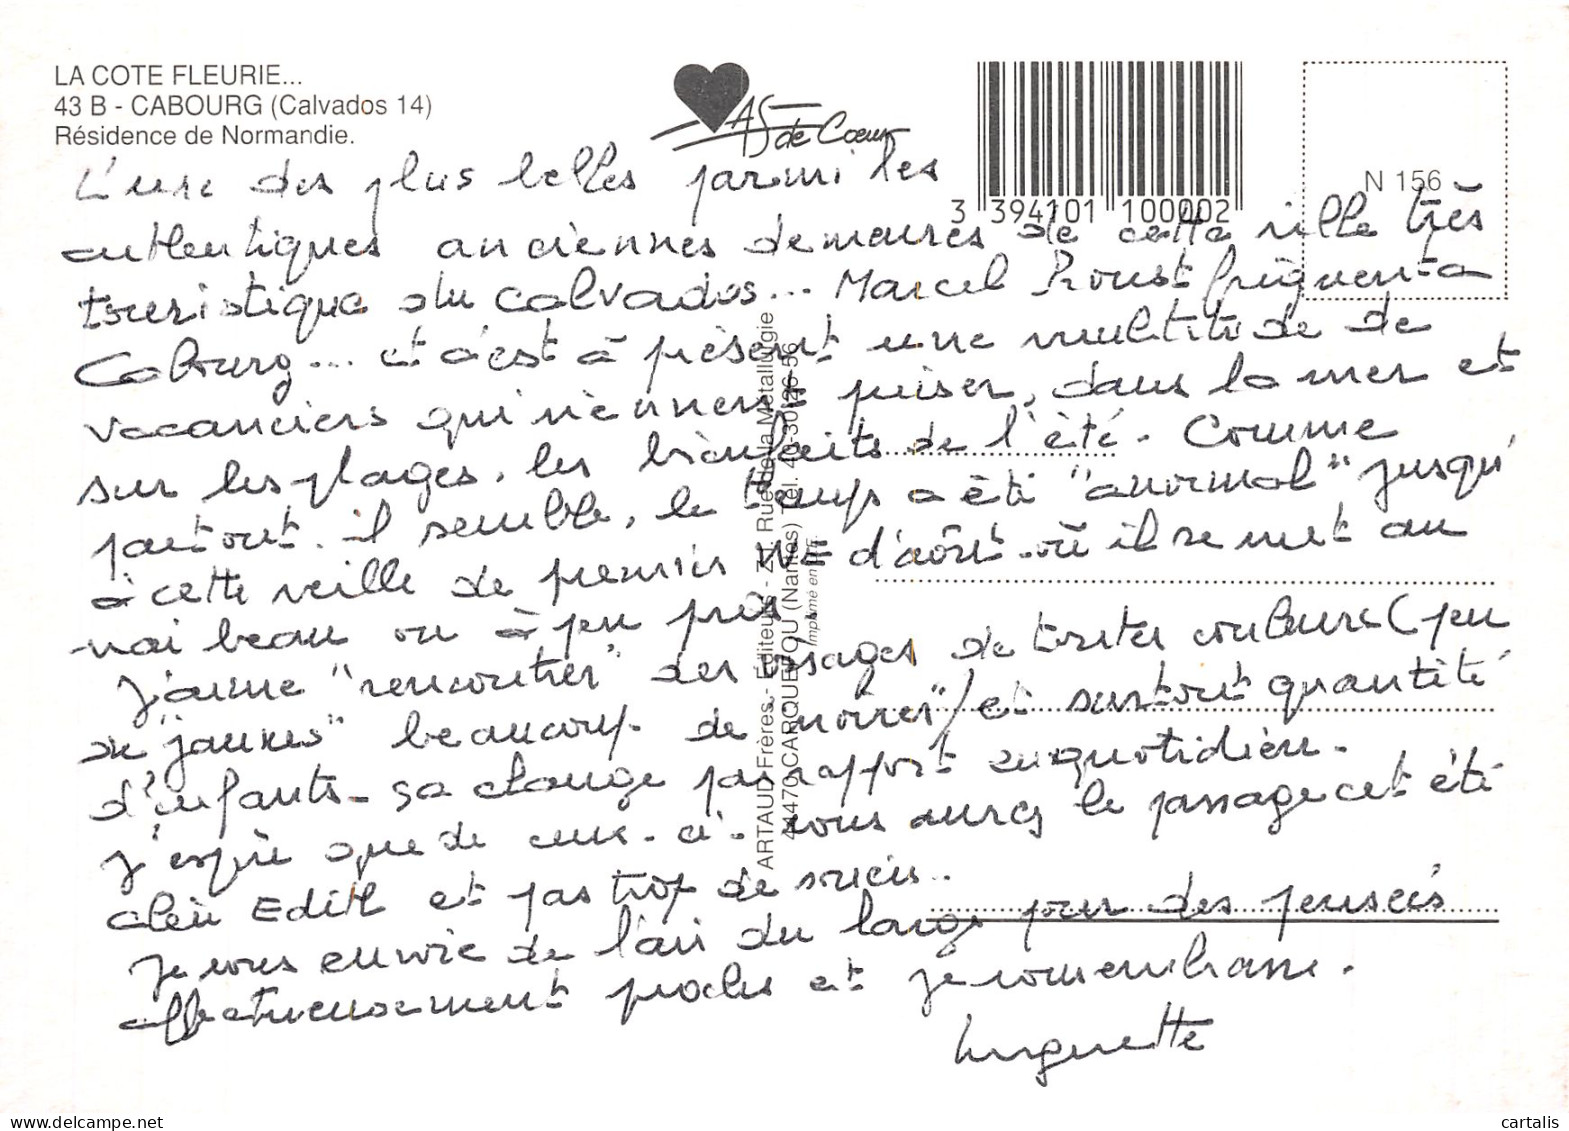 LA COTE FLEURIE...
43 B - CABOURG (Calvados 14)
Résidence de Normandie.
AS de Cœur
3 394101 100002
N 156
L'une des plus belles parmi les
authentiques anciennes demeures de cette ville très
touristique du Calvados... Marcel Proust fréquenta
Cabourg... et c'est à présent une multitude de
vacanciers qui viennent puiser, dans la mer et
sur les plages, les bienfaits de l'été. Comme
partout, il semble, le temps a été "anormal" jusqu'
à cette veille de premier WE d'août où il se met au
vrai beau ou à peu près
J'aime "rencontrer" des visages de toutes couleurs (peu
de "jaunes" beaucoup de "noires") et surtout quantité
d'enfants - ça change par rapport au quotidien.
J'espère que de ceux-ci vous aurez le passage cet été
chère Edith et pas trop de soucis..
Je vous envoie de l'air du large pour des pensées
affectueusement proches et je vous embrasse.
Huguette
ARTAUD Frères.- Editeurs - Z.I. Rue de la Métallurgie
44470 CARQUEFOU (Nantes) Tél. 40-30-26-56
Imprimé en